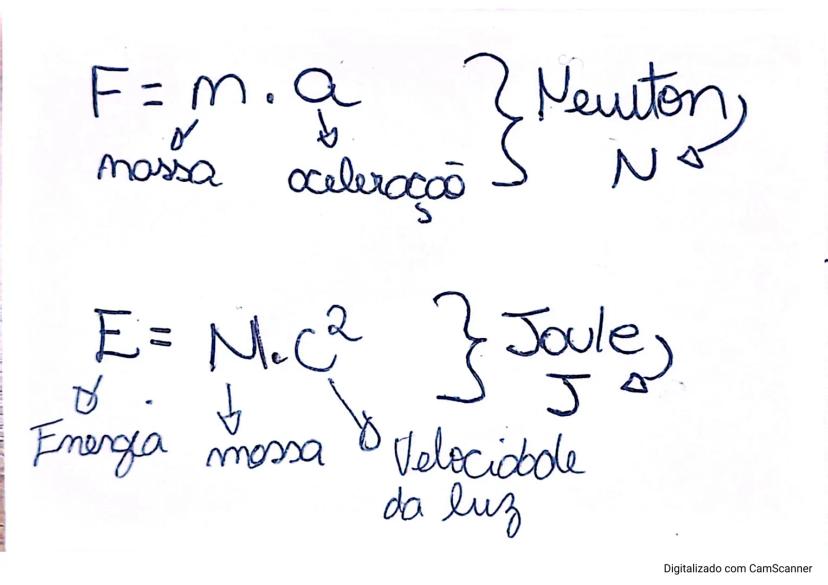 F = m . a } Newton
massa aceleração N
E = M.c² } Joule
J
Energia massa Velocidade
da luz
Digitalizado com CamScanner